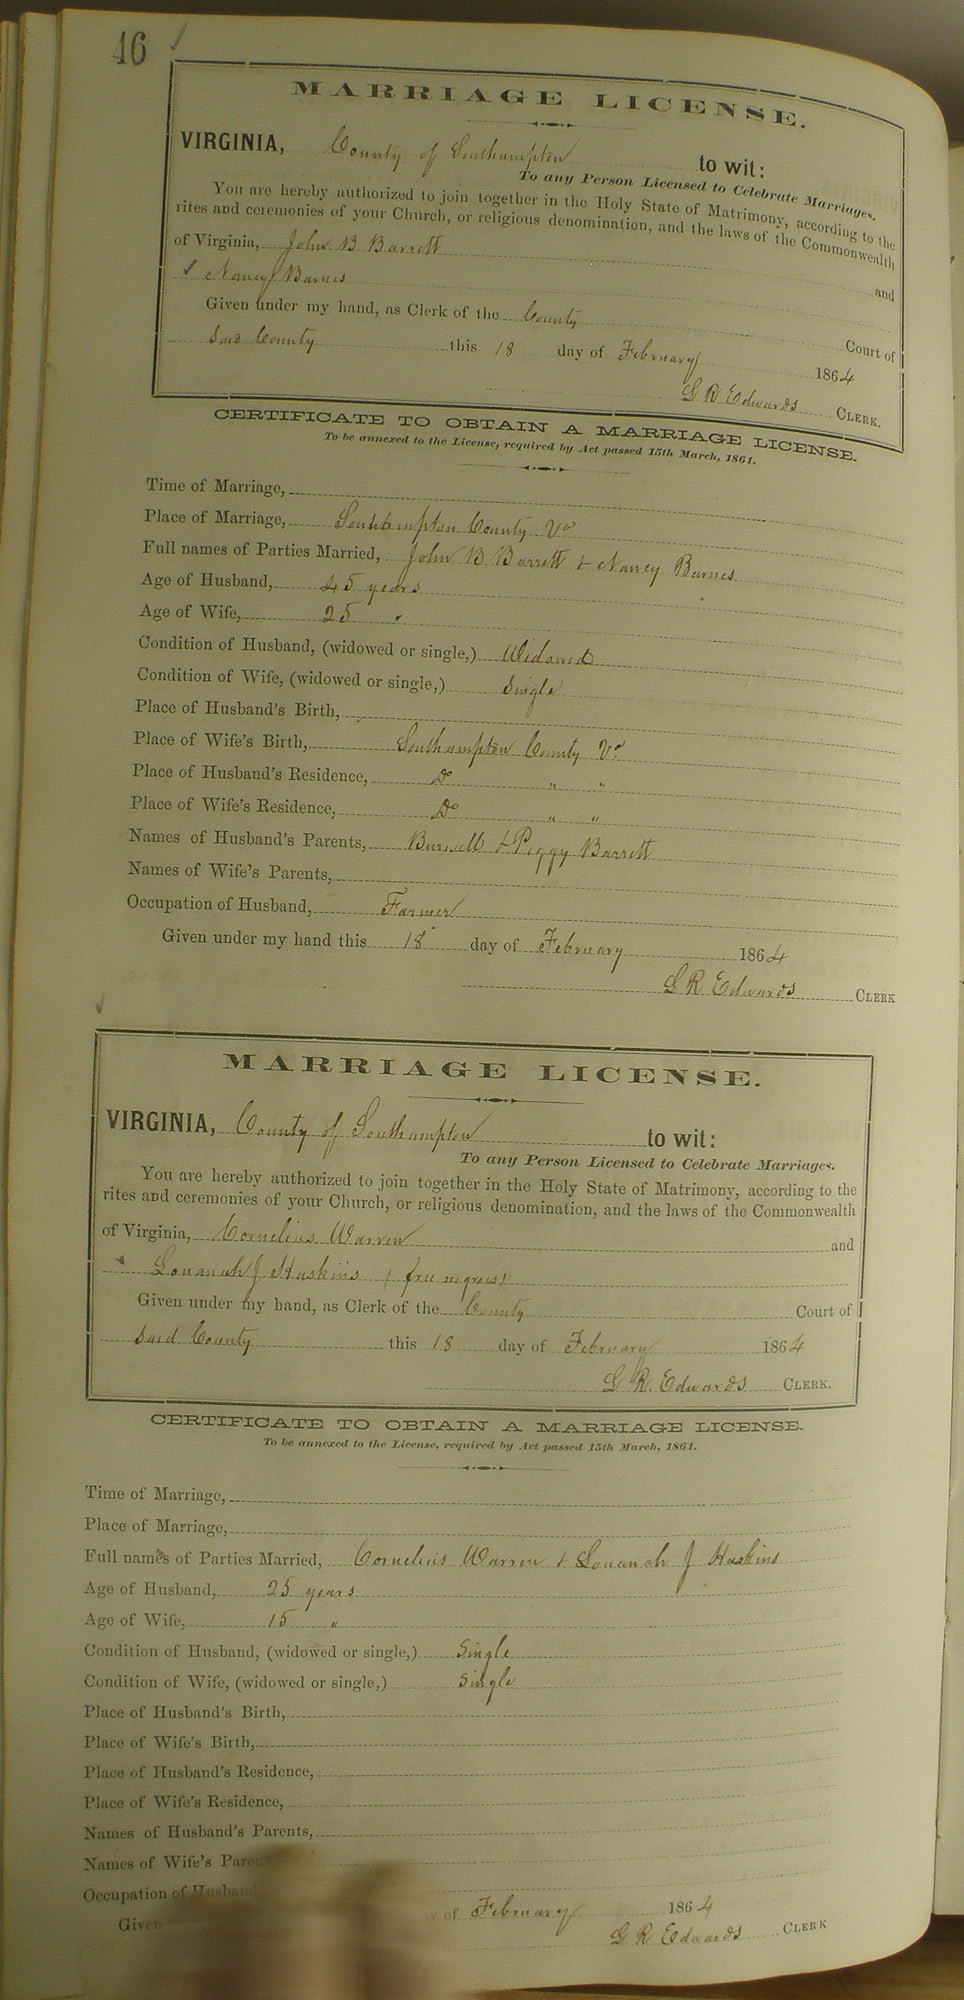 46
MARRIAGE LICENSE.
VIRGINIA, County of Southampton to wit:
To any Person Licensed to Celebrate Marriages.
You are hereby authorized to join together in the Holy State of Matrimony, according to the
rites and ceremonies of your Church, or religious denomination, and the laws of the Commonwealth
of Virginia, John B Barrett and
Nancy Barnes
Given under my hand, as Clerk of the County Court of
Said County this 18 day of February 1864
G R Edwards CLERK.
CERTIFICATE TO OBTAIN A MARRIAGE LICENSE.
To be annexed to the License, required by Act passed 15th March, 1861.
Time of Marriage,
Place of Marriage, Southampton County Va
Full names of Parties Married, John B Barrett + Nancy Barnes
Age of Husband, 45 years
Age of Wife, 25 "
Condition of Husband, (widowed or single,) Widowed
Condition of Wife, (widowed or single,) Single
Place of Husband's Birth,
Place of Wife's Birth, Southampton County Va
Place of Husband's Residence, Do " "
Place of Wife's Residence, Do " "
Names of Husband's Parents, Burwell + Peggy Barrett
Names of Wife's Parents,
Occupation of Husband, Farmer
Given under my hand this 18 day of February 1864
G R Edwards CLERK
MARRIAGE LICENSE.
VIRGINIA, County of Southampton to wit:
To any Person Licensed to Celebrate Marriages.
You are hereby authorized to join together in the Holy State of Matrimony, according to the
rites and ceremonies of your Church, or religious denomination, and the laws of the Commonwealth
of Virginia, Cornelius Warren and
Louanah J Haskins (free negroes)
Given under my hand, as Clerk of the County Court of
Said County this 18 day of February 1864
G R. Edwards CLERK.
CERTIFICATE TO OBTAIN A MARRIAGE LICENSE.
To be annexed to the License, required by Act passed 15th March, 1861.
Time of Marriage,
Place of Marriage,
Full names of Parties Married, Cornelius Warren + Louanah J Haskins
Age of Husband, 25 years
Age of Wife, 15 "
Condition of Husband, (widowed or single,) Single
Condition of Wife, (widowed or single,) Single
Place of Husband's Birth,
Place of Wife's Birth,
Place of Husband's Residence,
Place of Wife's Residence,
Names of Husband's Parents,
Names of Wife's Paren
Occupation of Husband
Given of February 1864
G R Edwards CLERK